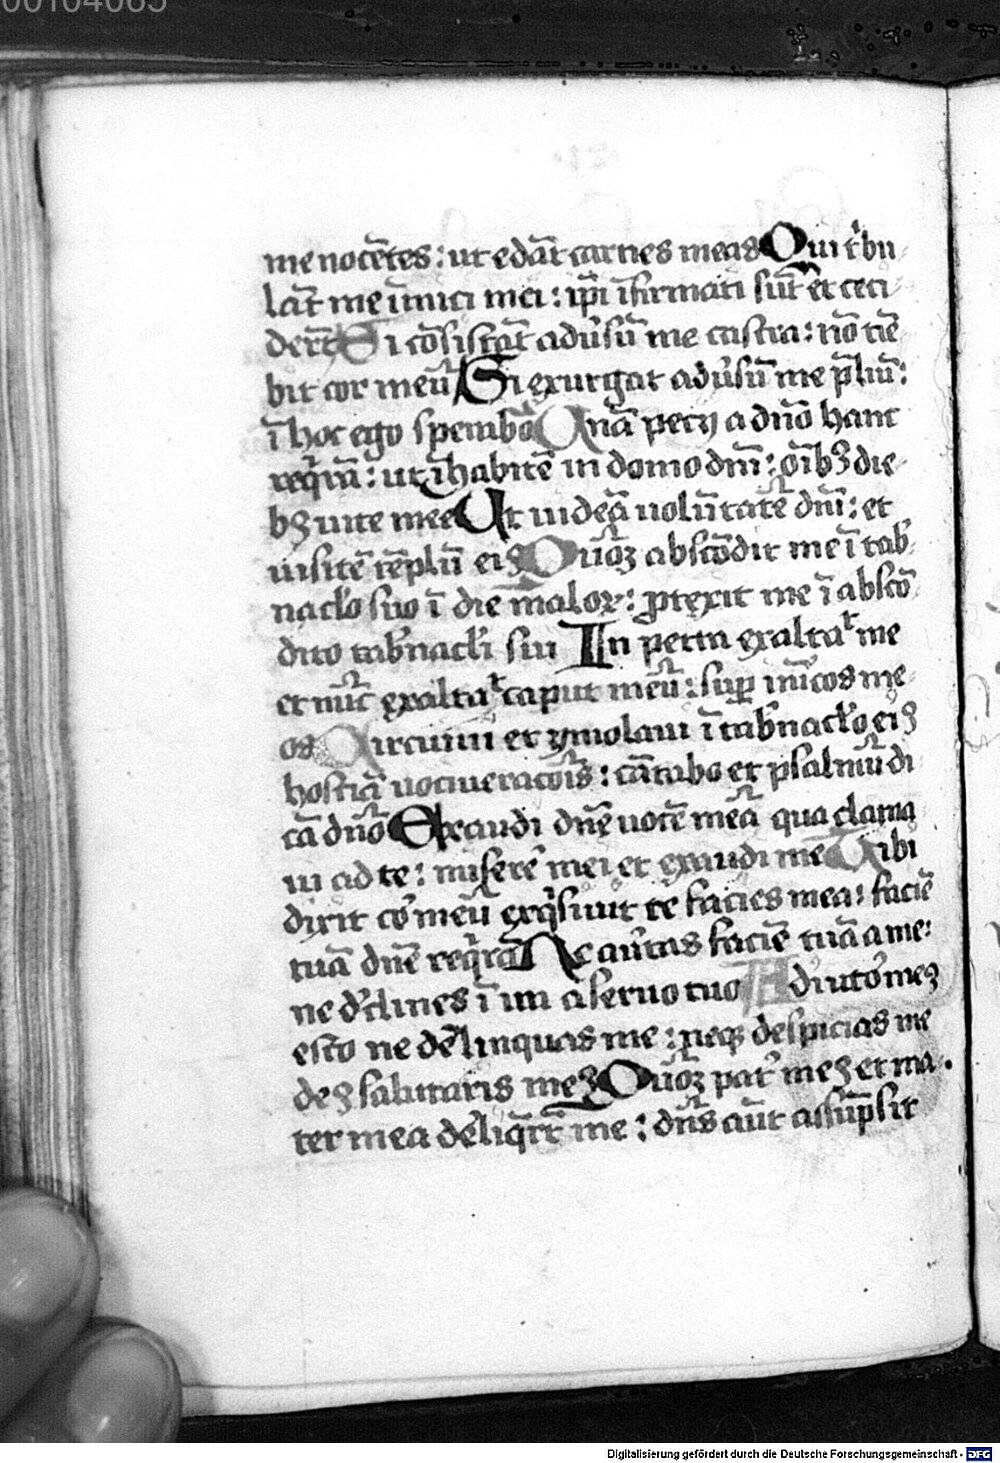 00104065
me nocẽtes: ut edãt carnes meas Qui tͥbu
lãt me inimici mei: ip̃i ĩfirmati sũt et ceci
derũt Si cõsistãt adu̾sũ me castra: nõ tiẽ
bit cor meũ Si exurgat adu̾sũ me p̃liũ:
ĩ hoc ego sperabõ Unã petij a dño hanc
reqͥrã: ut ĩhabitẽ in domo dñi: oĩbꝫ die
bꝫ uite mee Ut uideã uolũtatẽ dñi: et
uisitẽ tẽplũ eiꝫ Qũoꝫ abscõdit me ĩ tab̾
nac̃lo suo ĩ die maloꝝ: ꝓtexit me ĩ abscõ
dito tab̾nac̃li sui In petra exaltaᵗ me
et nũc exaltaᵗ caput meũ: sup̱ inĩicos me
os Circuiui et ymolaui ĩ tab̾nac̃lo eiꝫ
hostiã uociferacõis: cãtabo et psalmũ di
cã dño Exaudi dñe uocẽ meã qua clama
ui ad te: miserẽ mei et exaudi me Tibi
dixit co̾ meũ exqͥsiuit te facies mea: faciẽ
tuã dñe reqͥrã Ne au̾tas faciẽ tuã a me:
ne d̾clines ĩ ira a seruo tuo Adiuto̾ meꝫ
esto ne de̾linquas me: neqꝫ despicias me
deꝫ salutaris meꝫ Qũoꝫ pat̾ meꝫ et ma
ter mea de̾liq̃rũt me: dñs aũt assũpsit
Digitalisierung gefördert durch die Deutsche Forschungsgemeinschaft - DFG